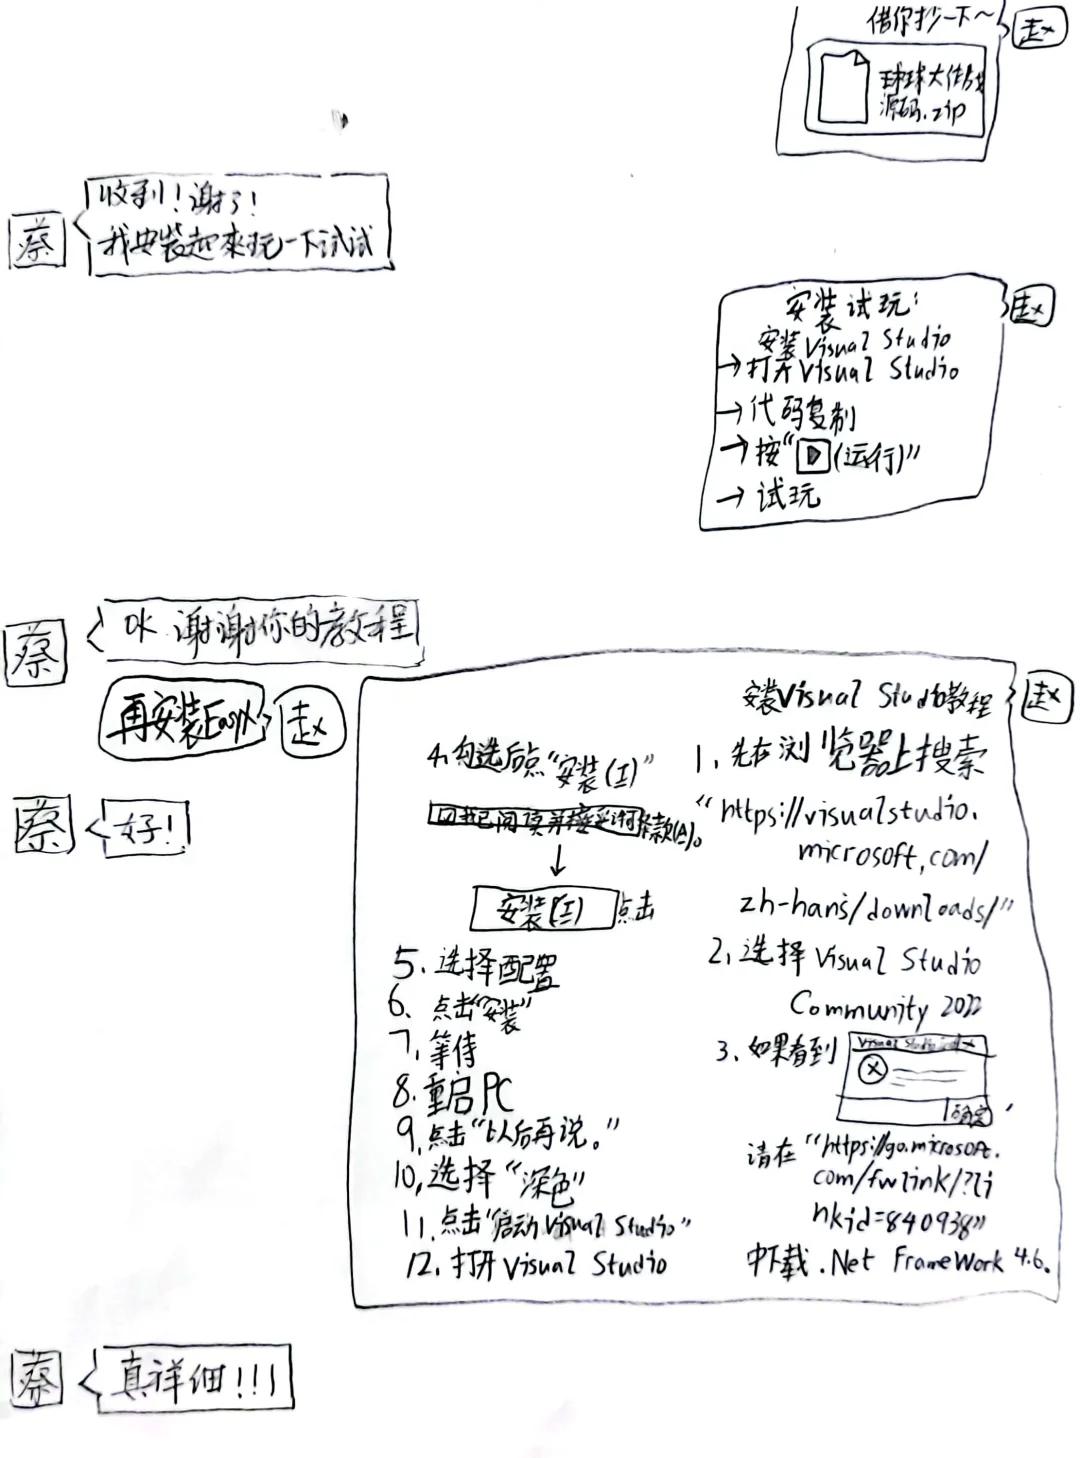 借你抄一下~
赵
球球大作战
源码.zip
蔡
收到！谢了！
我安装起来玩一下试试
安装试玩：
赵
安装Visual Studio
→打开Visual Studio
→代码复制
→按“▷(运行)”
→试玩
蔡
OK 谢谢你的教程
再安装EasyX
赵
蔡
好！
安装Visual Studio教程
赵
1、先在浏览器上搜索
“https://visualstudio.
microsoft.com/
zh-hans/downloads/”
2、选择Visual Studio
Community 2022
3、如果看到
Visual Studio
确定
，
请在“https://go.microsoft.
com/fwlink/?li
nkid=840938”
中下载.Net FrameWork 4.6。
4、勾选后点“安装(I)”
我已阅读并接受许可条款(A)。
↓
安装(I)
点击
5、选择配置
6、点击“安装”
7、等待
8、重启PC
9、点击“以后再说。”
10、选择“深色”
11、点击“启动Visual Studio”
12、打开Visual Studio
蔡
真详细!!!